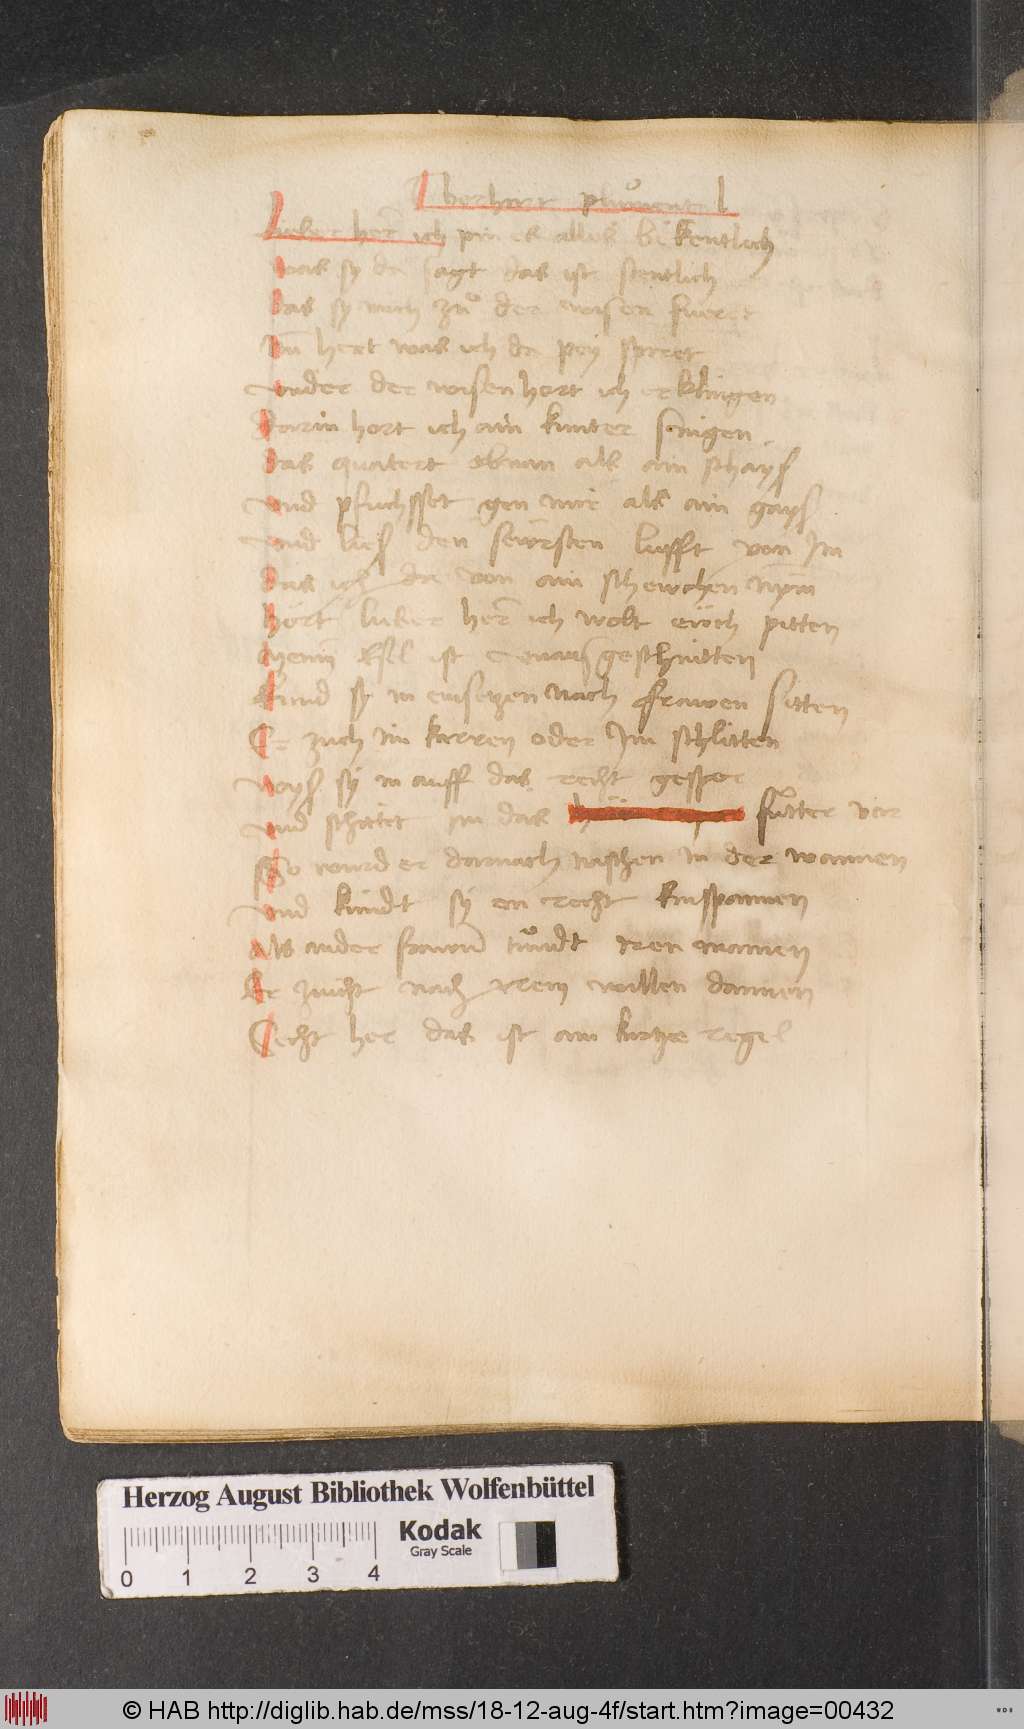 herhart plůmental
Lieber her ich pin es alles bekentlich
was sy da sagt das ist stentlich
das sy mich zů der wisen fueret
Nu hert was ich da pey spuret
vnder der wisen hort ich erklingen
darin hort ich ain kunter singen
das quatert ebnan als ain schayß
vnd pfuchsset gen mir als ain gayß
vnd ließ den sewrsten lufft von Im
das ich da von ain schewchen nym
hört lieber her ich wolt ewch pitten
Mein Esel ist vnaußgeschnitten
kund sy in einsetzen nach frawen sitten
Er zuch im karren oder Im schlitten
wayß sy in auff das recht gesper
vnd schütet im das fůtter vor
So wurd er darnach naschen in der wannen
vnd kündt sy en recht einspannen
Als ander frawen tůndt iren mannen
Er zücht nach irem willen dannen
Secht her das ist ain kurtze regel
Herzog August Bibliothek Wolfenbüttel
Kodak
Gray Scale
0 1 2 3 4
© HAB http://diglib.hab.de/mss/18-12-aug-4f/start.htm?image=00432